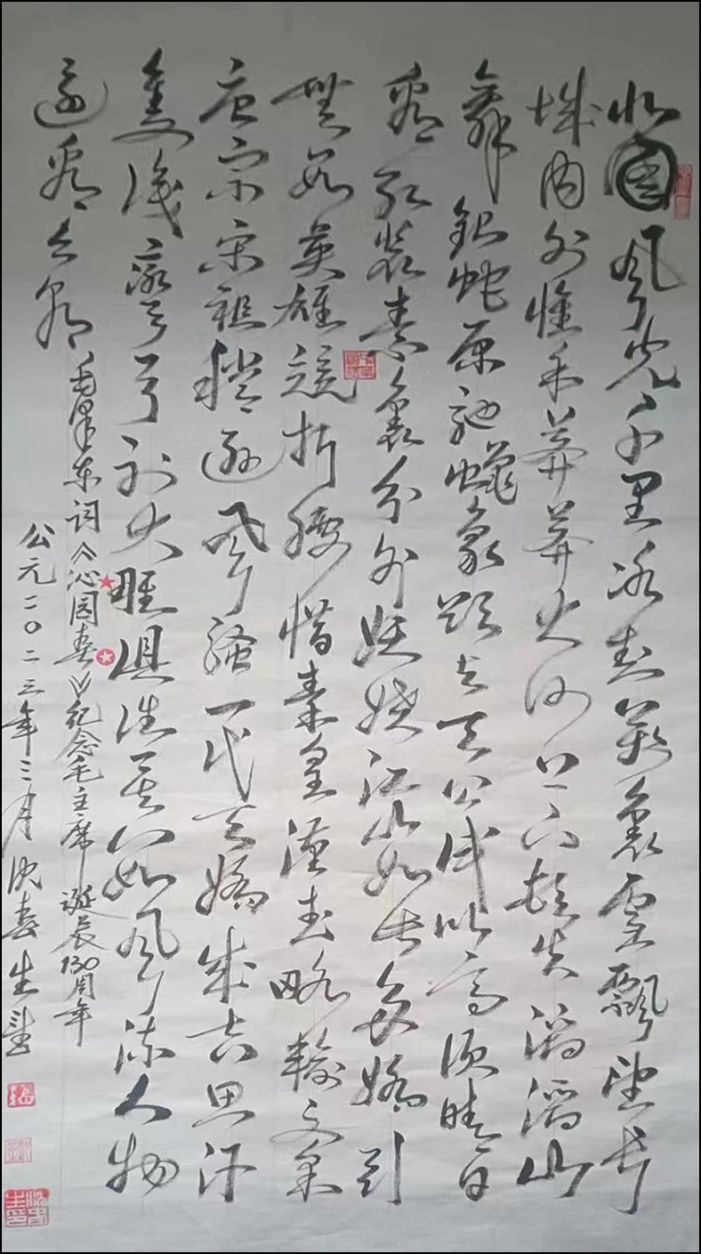 北国风光千里冰封萬裏雪飘望长
城内外惟余莽莽大河上下顿失滔滔山
舞银蛇原驰蜡象欲与天公试比高须晴日
看红装素裹分外妖娆江山如此多娇引
無数英雄競折腰惜秦皇漢武略输文采
唐宗宋祖稍逊风骚一代天骄成吉思汗
隻識彎弓射大雕俱往矣数风流人物
還看今朝
毛泽东词《沁园春》纪念毛主席诞辰130周年
公元二〇二三年三月沈春生书